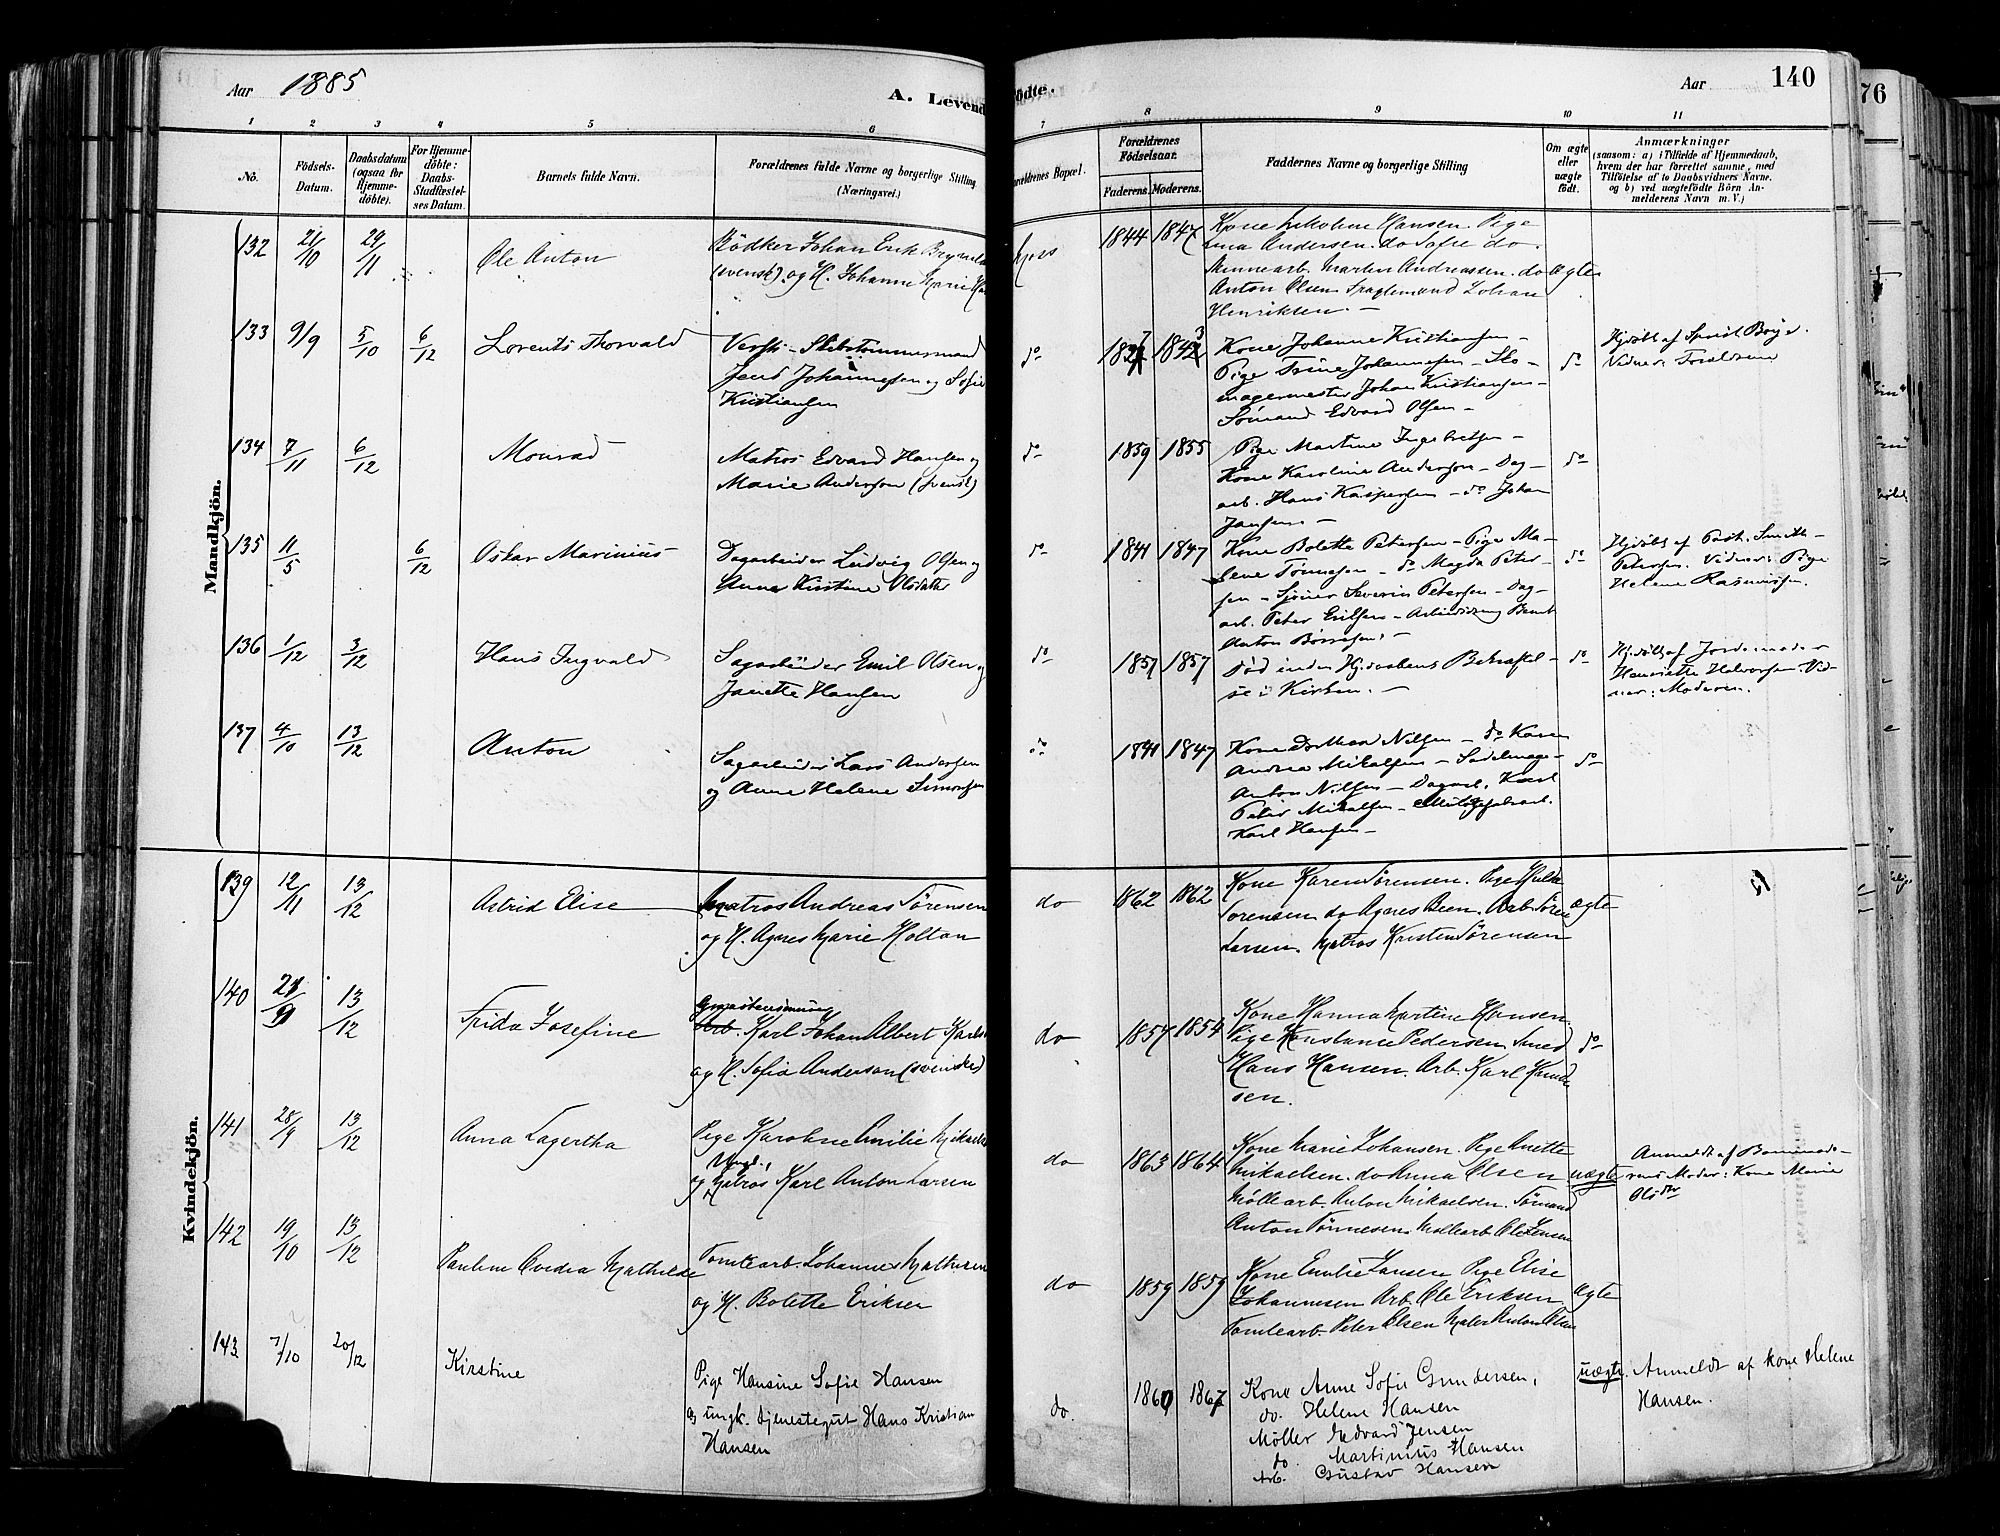 Aar 1885
A. Levend
ödte.
Aar
140
76
1
2
3
4
5
6
7
8
9
10
11
No.
Födsels-
Datum.
Daabsdatum
(ogsaa for
Hjemme-
döbte).
For Hjemme-
döbte:
Daabs-
Stadfæstel-
ses Datum.
Barnets fulde Navn.
Forældrenes fulde Navne og borgerlige Stilling
(Næringsvei.)
orældrenes Bopæl.
Forældrenes
Födselsaar.
Faderens.
Moderens.
Faddernes Navne og borgerlige Stilling
Om ægte
eller
uægte
födt.
Anmærkninger
(saasom: a) i Tilfælde af Hjemmedaab,
hvem der har forrettet samme, med
Tilföielse af to Daabsvidners Navne.
og b) ved uægtefödte Börn An-
melderens Navn m. V.)
Mandkjön.
132
21/10
29/11
Ole Anton
Bödker Johan Erik
(svensk) og H. Johanne Marie
1844
1847
Kone Hansen. Pige
Andersen. do Sofie do.
Martin Andreassen. do
Anton Olsen Johan
Henriksen. —
ægte
133
9/9
5/10
6/12
Lorents Thorvald
Skibstømmermand
Johannesen og Sofie
Kristiansen
do
Kone Johanne Kristiansen —
Pige Trine Johannesen — Sko-
magermester Johan Kristiansen —
Sømand Edvard Olsen —
do
Hjdøbt af
Vidner: Forældrene
134
7/11
6/12
Monrad
Matros Edvard Hansen og
Marie Anderson (svensk)
do
1859
1855
Pige Martine Ingebretsen —
Kone Karoline Andersen — Dag-
arb. Hans Kaspersen — do Johan
Jansen —
do
135
11/5
6/12
Oskar Marinius
Dagarbeider Ludvig Olsen og
Anna Kirstine Olsdatter
do
1841
1847
Kone Bolette Petersen — Pige Ma-
lene Tønnesen — do Magda Peter-
sen — Severin Petersen — Dag-
arb. Peter Eriksen — Bernt
Anton
do
Hjdøbt af
Petersen. Vidner: Pige
Helene Rasmussen.
136
1/12
3/12
Hans Ingvald
Sagarbeider Emil Olsen og
Janette Hansen
do
1857
1857
Død inden Hjdaabens Bekræftel-
se i Kirken. —
do
Hjdøbt af Jordemoder
Henriette Halvorsen. Vid-
ner: Moderen.
137
4/10
13/12
Anton
Sagarbeider Lars Andersen
og Anne Helene Simonsen
do
1841
1847
Kone Dorthea Nilsen — do Karen
Andrea Mikalsen — Sadelmager
Anton Nilsen — Dagarb. Karl
Peter Mikalsen —
Karl Hansen —
do
Kvindekjön.
139
12/11
13/12
Astrid Elise
Matros Andreas Sørensen
og H. Agnes Marie Holtan
do
1862
1862
Kone Karen Sørensen. Pige Hulda
Sorensen do Agnes Been. Arb. Søren
Larsen. Matros Karsten Sørensen
ægte
140
13/12
Frida Josefine
Arb. Karl Johan Albert Karls
og H. Sofia Anderson (svenske)
do
1857
1854
Kone Hanna Martine Hansen
Pige Konstanse Pedersen Smed
Hans Hansen. Arb. Karl Knud
sen.
do
141
28/9
13/12
Anna Lagertha
Pige Karoline Emilie Mikaels
Ungk.
og Matros Karl Anton Larsen
do
1863
1864
Kone Marie Johansen. Pige Anette
Mikaelsen. do Anna Olsen
Møllearb. Anton Mikaelsen. Sømand
Anton Tønnesen. Møllearb Ole Jensen
uægte
Anmeldt af Barnemode-
rens Moder: Kone Marie
Olsdtr
142
19/10
13/12
Pauline Ovedia Mathilde
Tomtearb. Johannes Mathisen
og H. Bolette Eriksen
do
1859
1859
Kone Emilie Jansen Pige Elise
Johannesen Arb. Ole Eriksen
Tomtearb. Peter Olsen Maler Anton Olsen
Ægte
143
7/10
20/12
Kirstine
Pige Hansine Sofie Hansen
og ungk. tjenestegut Hans Kristian
Hansen
do.
1860
1867
Kone Anne Sofie Gundersen,
do. Helene Hansen
Møller Edvard Jensen
do. Martinius Hansen
Arb. Gustav Hansen
uægte.
Anmeldt af kone Helene
Hansen.